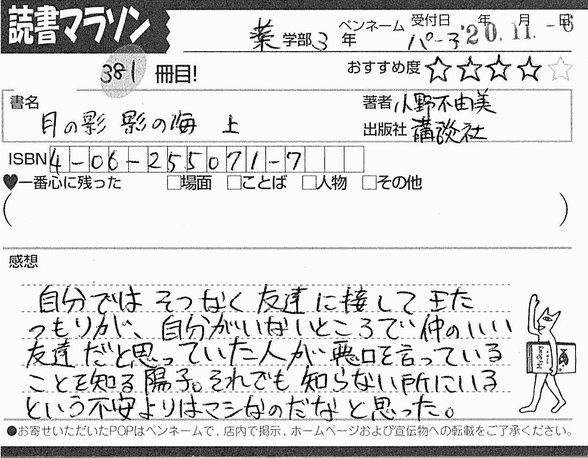 読書マラソン
薬学部3年 ペンネーム パーヌ 受付日 '20.11.-6 年 月 日
381冊目! おすすめ度 ☆☆☆☆☆
書名 月の影 影の海 上
著者 小野不由美
出版社 講談社
ISBN 4-06-255071-7
♥一番心に残った □場面 □ことば □人物 □その他
( )
感想
自分では そつなく 友達に接してきた
つもりが、自分がいないところで、仲のいい
友達だと思っていた人が悪口を言っている
ことを知る陽子。それでも 知らない所にいる
という不安よりはマシなのだなと思った。
●お寄せいただいたPOPはペンネームで、店内で掲示、ホームページおよび宣伝物への転載をご了承ください。